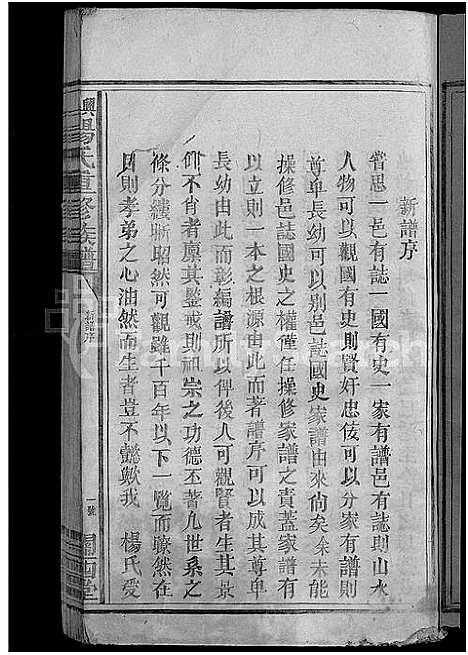 新譜序
嘗思一邑有誌一國有史一家有譜邑有誌則山水
人物可以觀國有史則賢奸忠佞可以分家有譜則
尊卑長幼可以别邑誌國史家譜由來尙矣余未能
操修邑誌國史之權僅任操修家譜之責蓋家譜有
以立則一本之根源由此而著譜序可以成其尊卑
長幼由此而彰編譜所以俾後人可觀賢者生其景
仰不肖者凜其鑒戒則祖宗之功德丕著凡世系之
條分縷晣昭然可觀雖千百年以下一覽而瞭然在
目則孝弟之心油然而生者豈不懿歟我 楊氏受
興楊氏重修族譜
新譜序
一號
關西堂